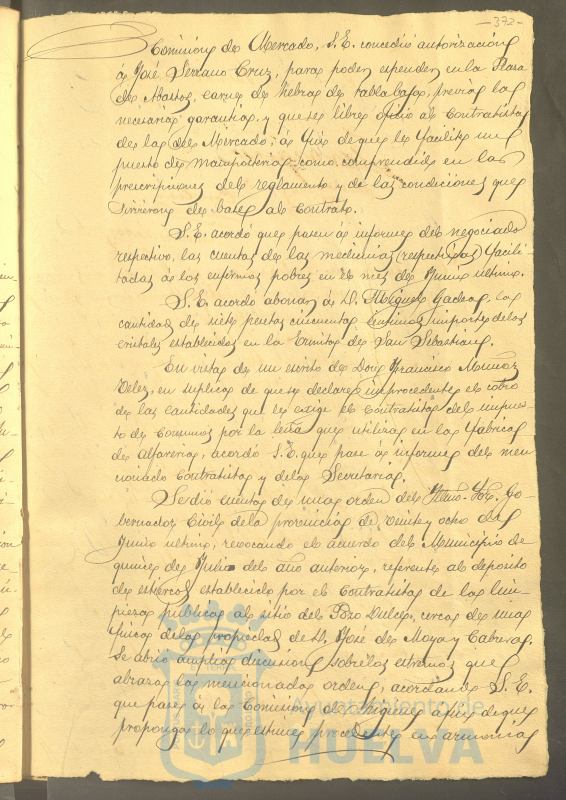 -372-
Comision de Mercado, S.E. concedió autorizacion
á José Serrano Cruz, para poder espender en la Plaza
de Abastos, carne de hebra de tabla baja, previas las
necesarias garantias, y que se libre oficio al Contratista
de la del Mercado, á fin de que le facilite un
puesto de
prescripciones del reglamento y de las condiciones que
sirvieron de base al Contrato.
S.E. acordó que pasen á informe del negociado
respectivo, las cuentas de las medicinas (respectivas) facili-
tadas á los enfermos pobres en el mes de Junio ultimo.
S.E. acordó abonar á D. Miguel la
cantidad de siete pesetas cincuenta centimos importe de los
cristales establecidos en la Ermita de San Sebastian.
En vista de un escrito de Don Francisco Muñoz
Velez, en suplica de que se declare improcedente el cobro
de las cantidades que le exige el Contratista del impues-
to de Consumos por la leña que utiliza en las fabricas
de alfareria, acordó S.E. que pase á informe del men-
cionado Contratista y de la Secretaria.
Se dió cuenta de una orden del Iltmo. Sor. Go-
bernador Civil de la provincia de veinte y ocho de
Junio ultimo, revocando el acuerdo del Municipio de
quince de Julio del año anterior, referente al deposito
de estiercol establecido por el Contratista de la lim-
pieza publica al sitio del Pozo Dulce, cerca de una
finca de la propiedad de D. José de Moya y Cabrera.
Se abrió amplia discusion sobre los estremos que
abraza la mencionada orden, acordando S.E.
que pase á la Comision de Higiene á fin de que
proponga lo que estime procedente en armonia
Ayuntamiento de
HUELVA